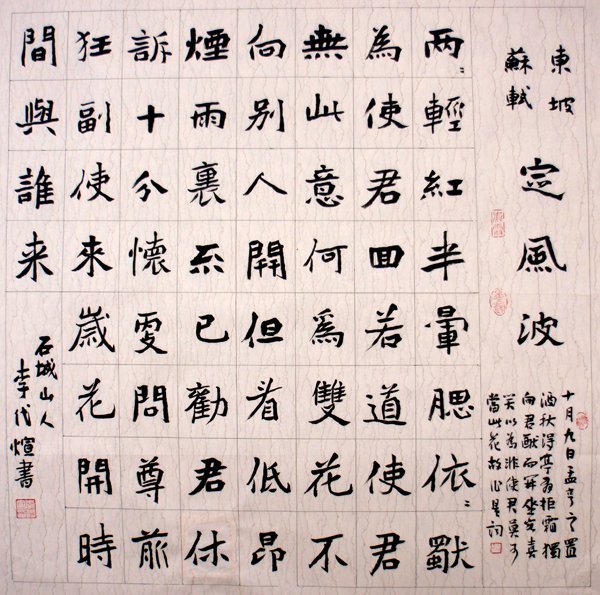 東坡
蘇軾
定風波
十月九日孟亨之置
酒秋得亭有拒霜獨
向君猷而開坐客喜
笑以為非使君莫可
當此花故作是詞
两々輕紅半暈腮依々獨
為使君回若道使君
無此意何爲雙花不
向别人開但看低昂
煙雨裏不已勸君休
訴十分懷更問尊前
狂副使來歲花開時
間與誰来
石城山人
李代煊書